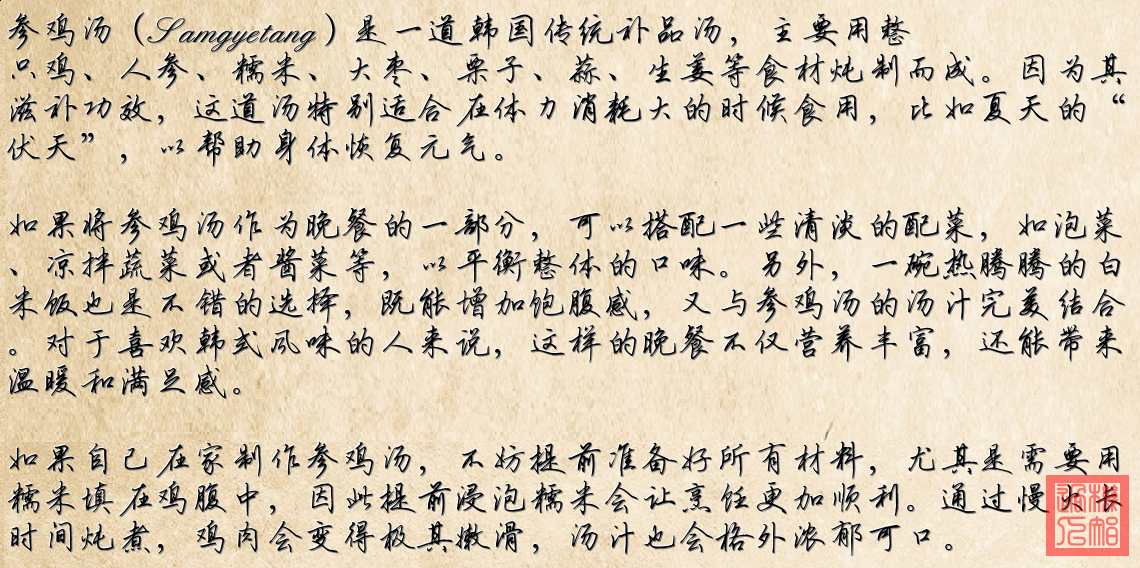 参鸡汤（Samgyetang）是一道韩国传统补品汤，主要用整
只鸡、人参、糯米、大枣、栗子、蒜、生姜等食材炖制而成。因为其
滋补功效，这道汤特别适合在体力消耗大的时候食用，比如夏天的“
伏天”，以帮助身体恢复元气。
如果将参鸡汤作为晚餐的一部分，可以搭配一些清淡的配菜，如泡菜
、凉拌蔬菜或者酱菜等，以平衡整体的口味。另外，一碗热腾腾的白
米饭也是不错的选择，既能增加饱腹感，又与参鸡汤的汤汁完美结合
。对于喜欢韩式风味的人来说，这样的晚餐不仅营养丰富，还能带来
温暖和满足感。
如果自己在家制作参鸡汤，不妨提前准备好所有材料，尤其是需要用
糯米填在鸡腹中，因此提前浸泡糯米会让烹饪更加顺利。通过慢火长
时间炖煮，鸡肉会变得极其嫩滑，汤汁也会格外浓郁可口。